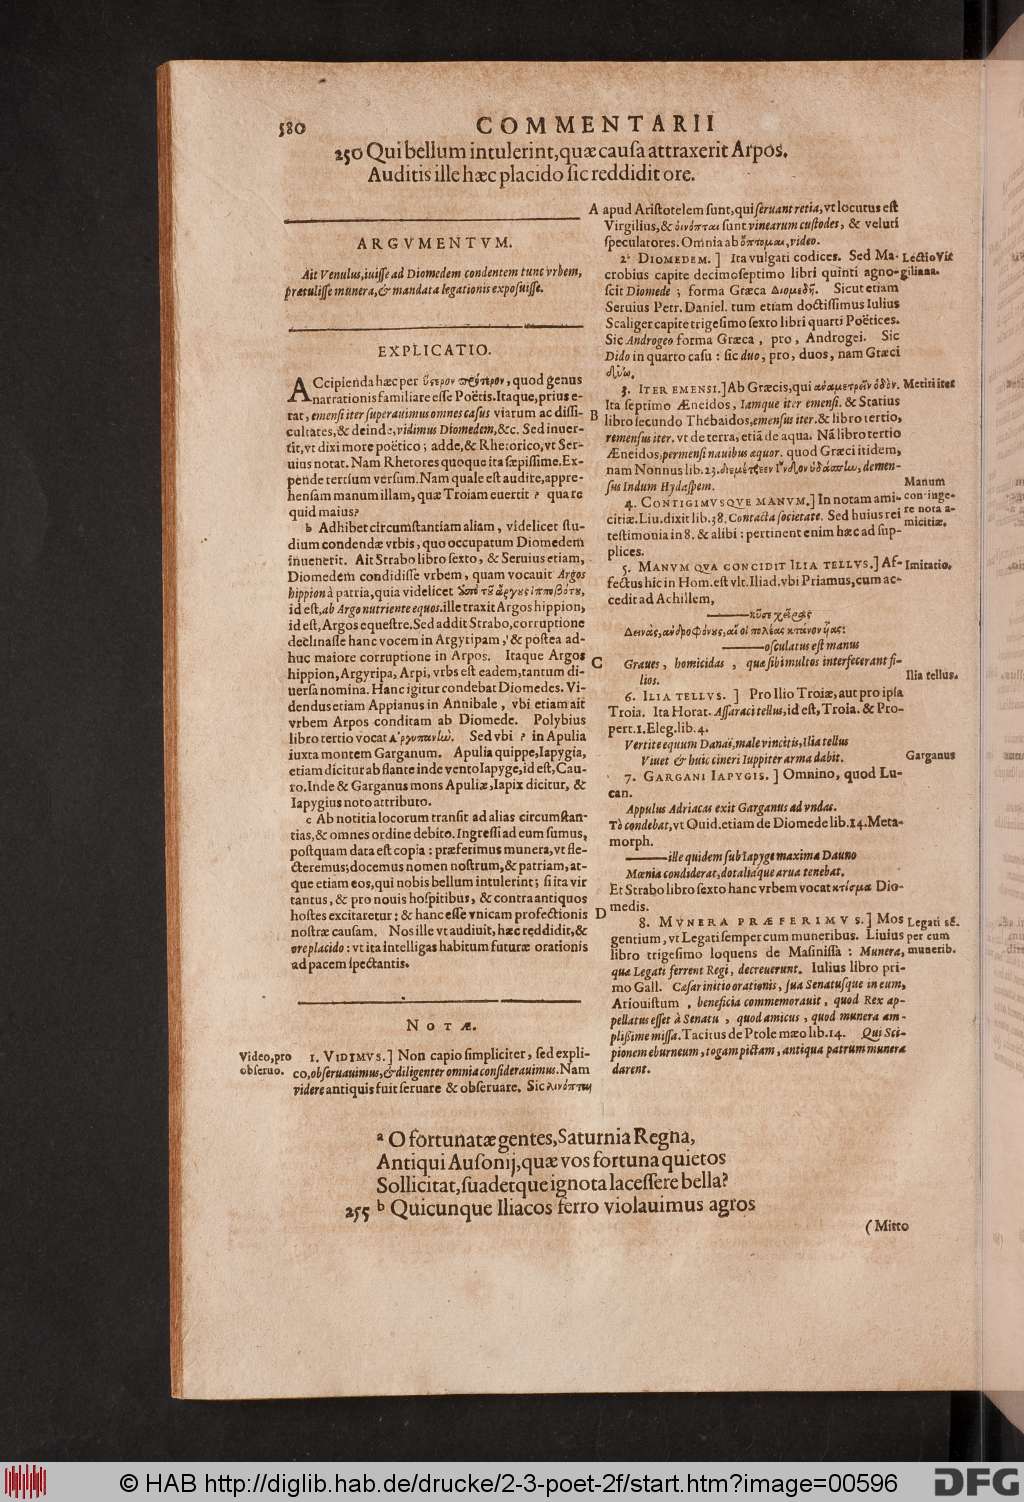 580
COMMENTARII
250 Qui bellum intulerint, quæ causa attraxerit Arpos.
Auditis ille hæc placido sic reddidit ore.
ARGVMENTVM.
Ait Venulus, iuisse ad Diomedem condentem tunc vrbem,
prætulisse munera, & mandata legationis exposuisse.
EXPLICATIO.
ACcipienda hæc per ὕστερον πρότερον, quod genus
narrationis familiare esse Poëtis. Itaque, prius e-
rat, emensi iter superauimus omnes casus viarum ac diffi-
cultates, & deinde, vidimus Diomedem, &c. Sed inuer-
tit, vt dixi more poëtico; adde, & Rhetorico, vt Ser-
uius notat. Nam Rhetores quoque ita sæpissime. Ex-
pende tertium versum. Nam quale est audire, appre-
hensam manum illam, quæ Troiam euertit? quare
quid maius?
b Adhibet circumstantiam aliam, videlicet stu-
dium condendæ vrbis, quo occupatum Diomedem
inuenerit. Ait Strabo libro sexto, & Seruius etiam,
Diomedem condidisse vrbem, quam vocauit Argos
hippion à patria, quia videlicet ἀπὸ τοῦ ἄργους ἱπποβότου,
id est, ab Argo nutriente equos. ille traxit Argos hippion,
id est, Argos equestre. Sed addit Strabo, corruptione
declinasse hanc vocem in Argyripam, & postea ad-
huc maiore corruptione in Arpos. Itaque Argos
hippion, Argyripa, Arpi, vrbs est eadem, tantum di-
uersa nomina. Hanc igitur condebat Diomedes. Vi-
dendus etiam Appianus in Annibale, vbi etiam ait
vrbem Arpos conditam ab Diomede. Polybius
libro tertio vocat Ἀργυπανὼ. Sed vbi? in Apulia
iuxta montem Garganum. Apulia quippe, Iapygia,
etiam dicitur ab flante inde vento Iapyge, id est, Cau-
ro. Inde & Garganus mons Apuliæ, Iapix dicitur, &
Iapygius noto attributo.
c Ab notitia locorum transit ad alias circumstan-
tias, & omnes ordine debito. Ingressi ad eum sumus,
postquam data est copia: præferimus munera, vt fle-
cteremus; docemus nomen nostrum, & patriam, at-
que etiam eos, qui nobis bellum intulerint; si ita vir
tantus, & pro nouis hospitibus, & contra antiquos
hostes excitaretur; & hanc esse vnicam profectionis
nostræ causam. Nos ille vt audiuit, hæc reddidit, &
ore placido: vt ita intelligas habitum futuræ orationis
ad pacem spectantis.
NOTÆ.
Video, pro
obseruo.
1. VIDIMVS.] Non capio simpliciter, sed expli-
co, obseruauimus, & diligenter omnia considerauimus. Nam
videre antiquis fuit seruare & obseruare. Sic λινόπται
A apud Aristotelem sunt, qui seruant retia, vt locutus est
Virgilius, & οἰνόπται sunt vinearum custodes, & veluti
speculatores. Omnia ab ὄπτομαι, video.
2. DIOMEDEM.] Ita vulgati codices. Sed Ma-
crobius capite decimoseptimo libri quinti agno-
scit Diomede; forma Græca Διομεδῆ. Sicut etiam
Seruius Petr. Daniel. tum etiam doctissimus Iulius
Scaliger capite trigesimo sexto libri quarti Poëtices.
Sic Androgeo forma Græca, pro, Androgei. Sic
Dido in quarto casu: sic duo, pro, duos, nam Græci
δύω.
Lectio Vir
giliana.
3. ITER EMENSI.] Ab Græcis, qui ἀναμετρεῖν ὁδὸν.
Metiri iter
Ita septimo Æneidos, Iamque iter emensi. & Statius
B libro secundo Thebaidos, emensus iter. & libro tertio,
remensus iter. vt de terra, etiā de aqua. Nā libro tertio
Æneidos, permensi nauibus æquor. quod Græci itidem,
nam Nonnus lib. 23. διεμέτρεεν Ἰνδὸν ὑδάσπω, demen-
sus Indum Hydaspem.
4. CONTIGIMVSQVE MANVM.] In notam ami-
citiæ. Liu. dixit lib. 38. Contacta societate. Sed huius rei
testimonia in 8. & alibi: pertinent enim hæc ad sup-
plices.
Manum
coniunge-
re nota a-
micitiæ.
5. MANVM QVA CONCIDIT ILIA TELLVS.] Af-
fectus hic in Hom. est vlt. Iliad. vbi Priamus, cum ac-
cedit ad Achillem,
Imitatio.
κῦσε χεῖρας
Δεινὰς, ἀνδροφόνους, αἵ οἱ πολέας κτάνον υἷας:
osculatus est manus
C Graues, homicidas, quæ sibi multos interfecerant fi-
lios.
6. ILIA TELLVS.] Pro Ilio Troiæ, aut pro ipsa
Troia. Ita Horat. Assaraci tellus, id est, Troia. & Pro-
pert. 1. Eleg. lib. 4.
Ilia tellus.
Vertite equum Danai, male vincitis, Ilia tellus
Viuet & huic cineri Iuppiter arma dabit.
7. GARGANI IAPYGIS.] Omnino, quod Lu-
can.
Garganus
Appulus Adriacas exit Garganus ad vndas.
Τὸ condebat, vt Ouid. etiam de Diomede lib. 14. Meta-
morph.
ille quidem sub Iapyge maxima Dauno
Mœnia condiderat, dotaliaque arua tenebat.
Et Strabo libro sexto hanc vrbem vocat κτίσμα Dio-
D medis.
8. MVNERA PRÆFERIMVS.] Mos
gentium, vt Legati semper cum muneribus. Liuius
libro trigesimo loquens de Masinissa: Munera,
quæ Legati ferrent Regi, decreuerunt. Iulius libro pri-
mo Gall. Cæsar initio orationis, sua Senatusque in eum,
Ariouistum, beneficia commemorauit, quod Rex ap-
pellatus esset à Senatu, quod amicus, quod munera am-
plissime missa. Tacitus de Ptolemæo lib. 14. Qui Sci-
pionem eburneum, togam pictam, antiqua patrum munera
darent.
Legati sē-
per cum
munerib.
a O fortunatæ gentes, Saturnia Regna,
Antiqui Ausonij, quæ vos fortuna quietos
Sollicitat, suadetque ignota lacessere bella?
255 b Quicunque Iliacos ferro violauimus agros
(Mitto
© HAB http://diglib.hab.de/drucke/2-3-poet-2f/start.htm?image=00596
DFG